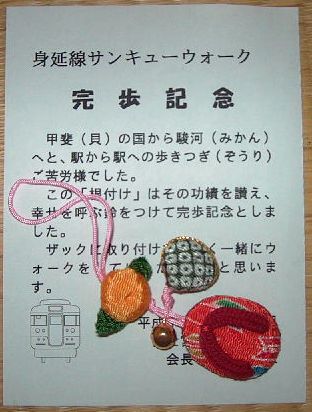 身延線サンキューウォーク
完歩記念
甲斐（貝）の国から駿河（みかん）
へと、駅から駅への歩きつぎ（ぞうり）
ご苦労様でした。
この「根付け」はその功績を讃え、
幸せを呼ぶ鈴をつけて完歩記念としま
した。
ザックに取り付け 一緒にウ
ォークを と思いま
す。
平成
会長